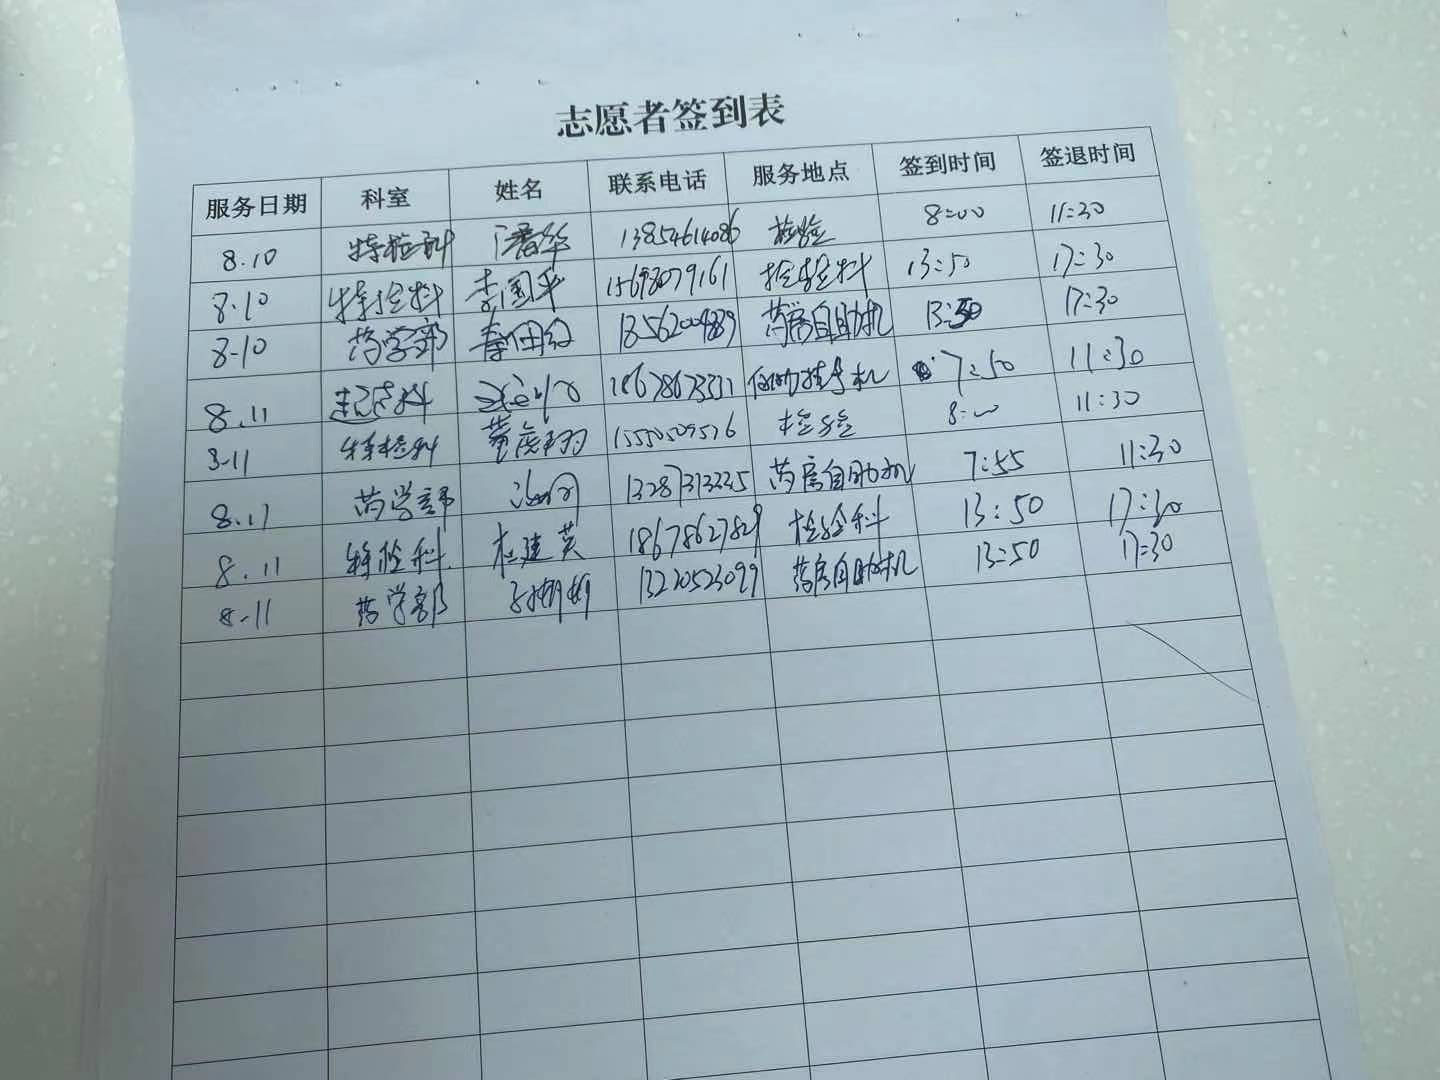 志愿者签到表
服务日期 科室 姓名 联系电话 服务地点 签到时间 签退时间
8.10 特检科 潘华 13854614086 检验 8:00 11:30
8.10 特检科 李国平 15698079161 检验科 13:50 17:30
8-10 药学部 药房自助机 13:50 17:30
8.11 18678673331 自助挂号机 7:50 11:30
8-11 特检科 15550509576 检验 8:00 11:30
8.11 药学部 13287313235 药房自助机 7:55 11:30
8.11 特检科 杜建英 18678627829 检验科 13:50 17:30
8.11 药学部 13220523099 药房自助机 13:50 17:30